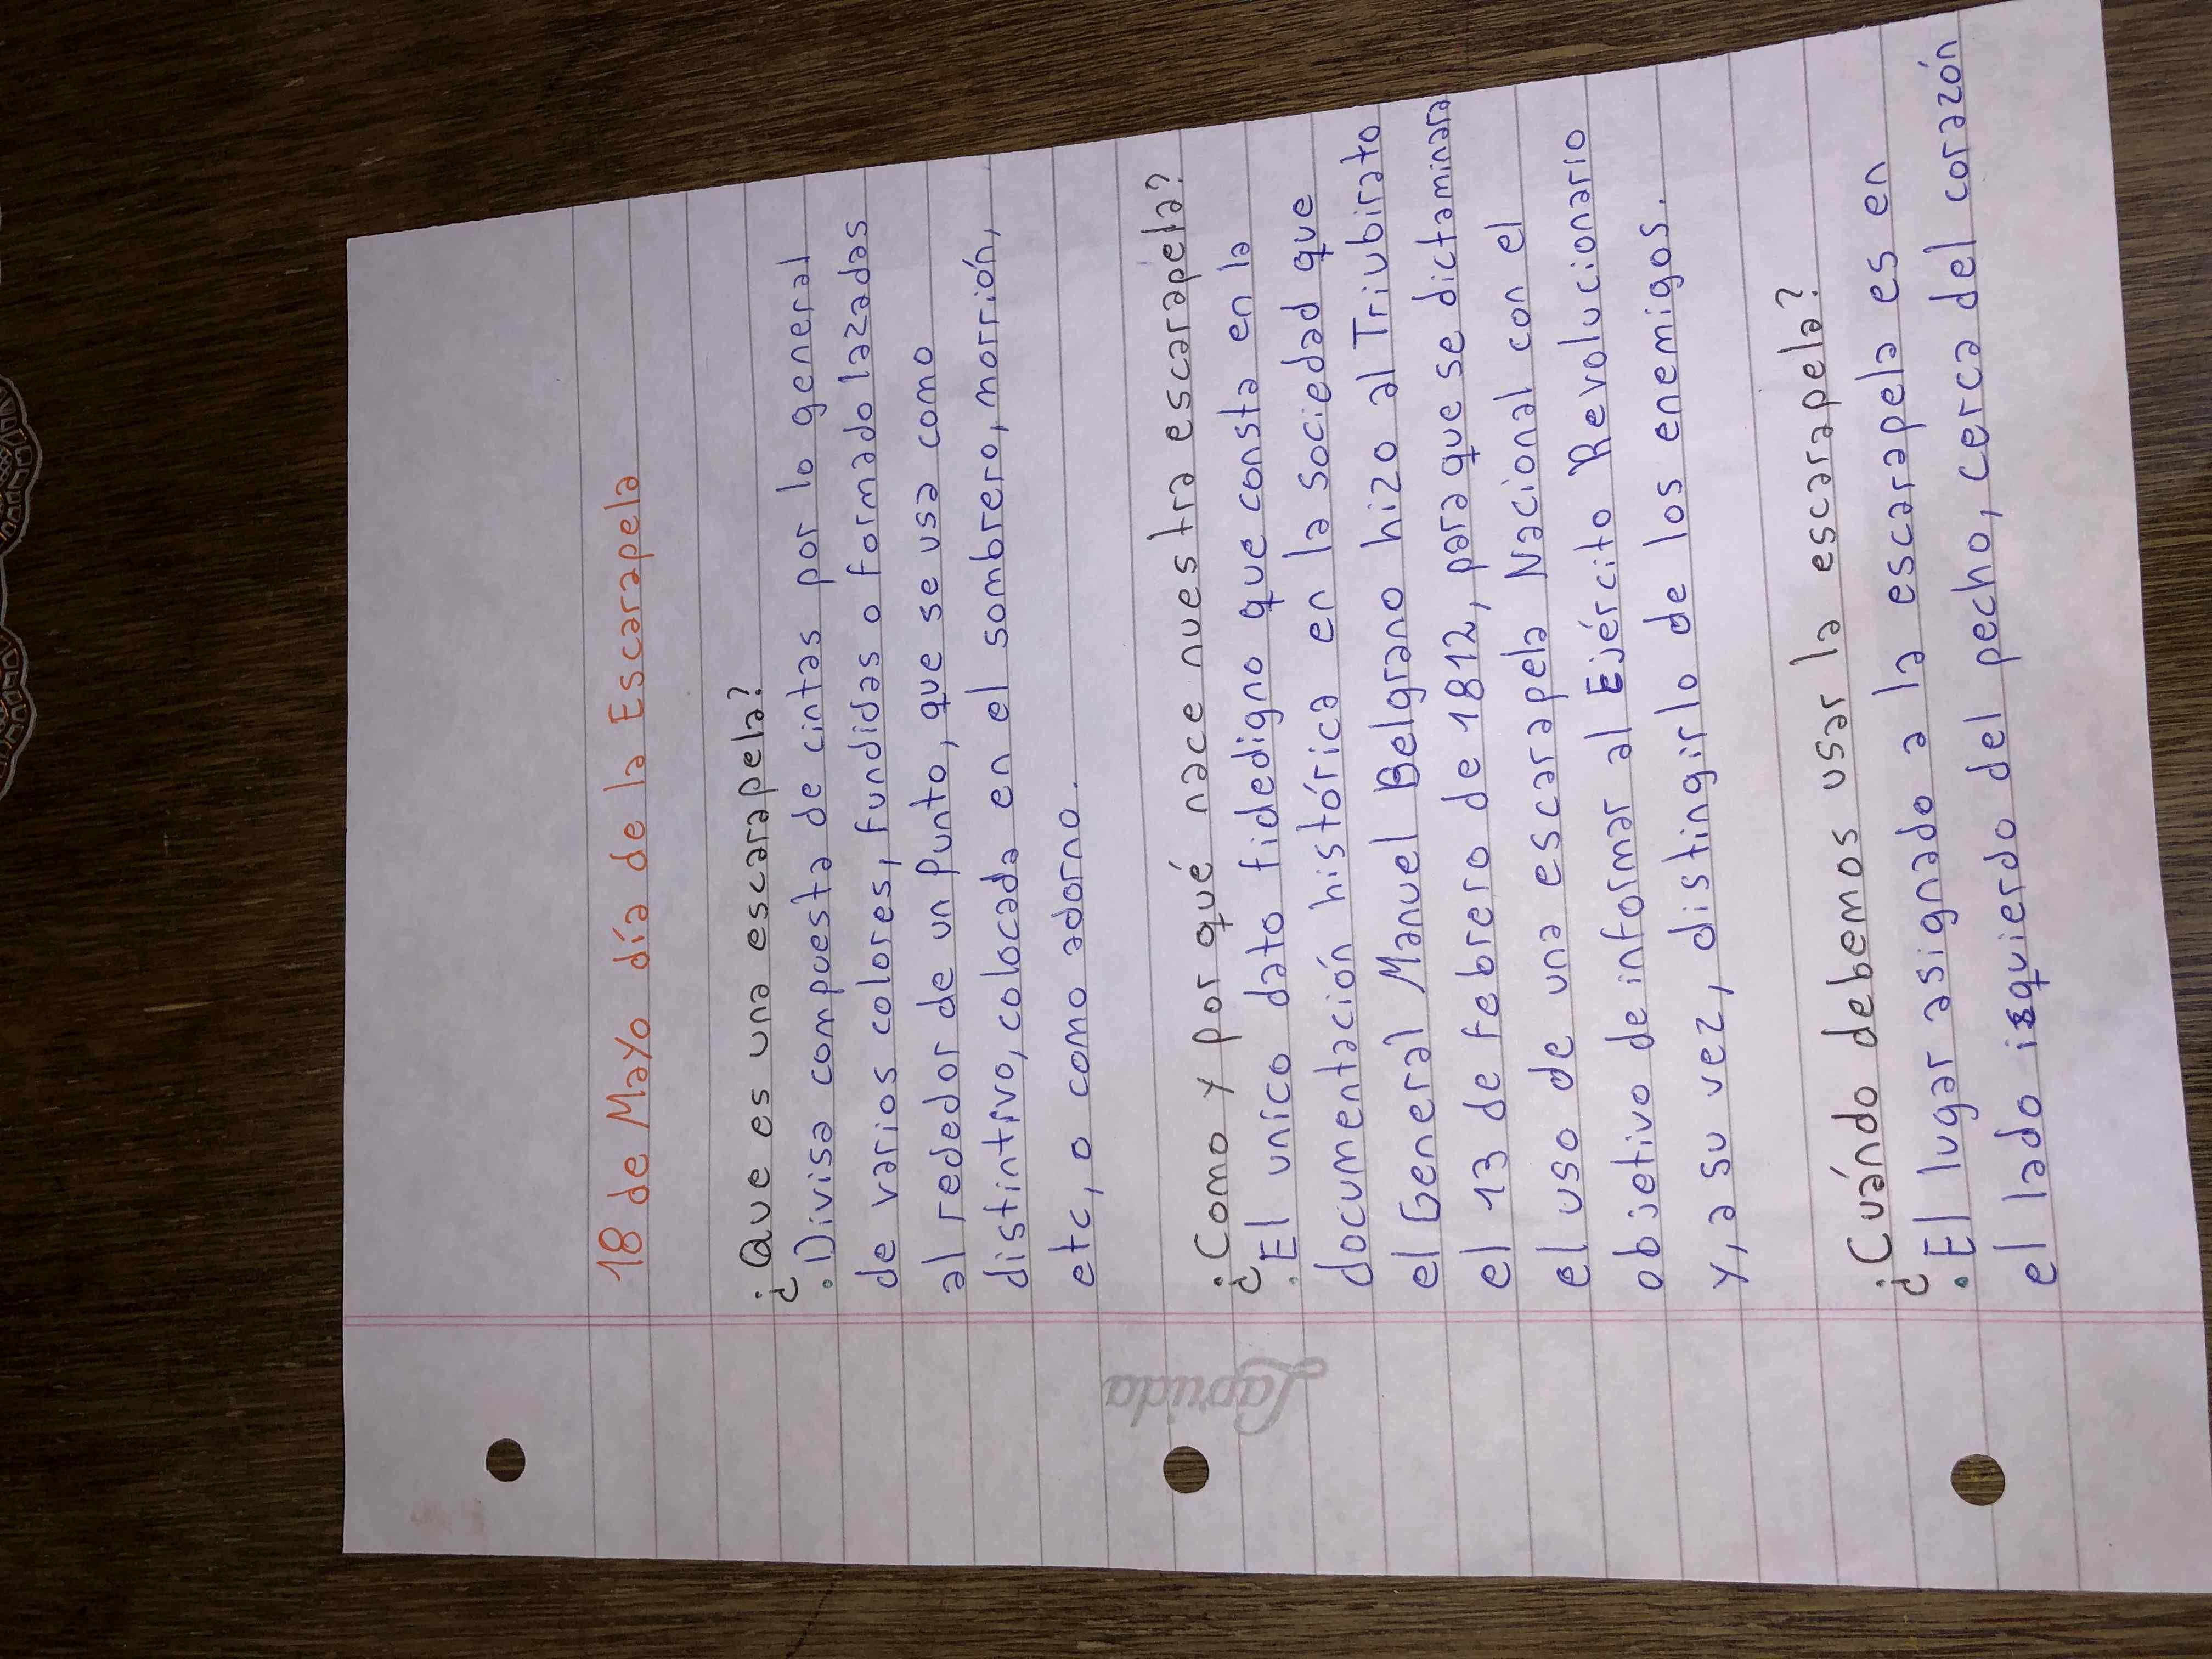 18 de Mayo día de la Escarapela
¿Que es una escarapela?
.Divisa compuesta de cintas por lo general
de varios colores, fundidas o formado lazadas
al rededor de un Punto, que se usa como
distintivo, colocada en el sombrero, morrión,
etc, o como adorno.
¿Como y por qué nace nuestra escarapela?
.El unico dato fidedigno que consta en la
documentación histórica en la sociedad que
el General Manuel Belgrano hizo al Triubirato
el 13 de febrero de 1812, para que se dictaminara
el uso de una escarapela Nacional con el
objetivo de informar al Ejército Revolucionario
y, a su vez, distingirlo de los enemigos.
¿Cuándo debemos usar la escarapela?
.El lugar asignado a la escarapela es en
el lado isquierdo del pecho, cerca del corazón
Laprida